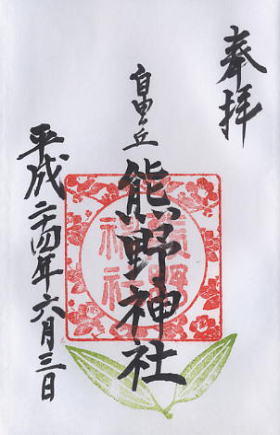 奉拝
自由ヶ丘
熊野神社
平成二十四年六月三日